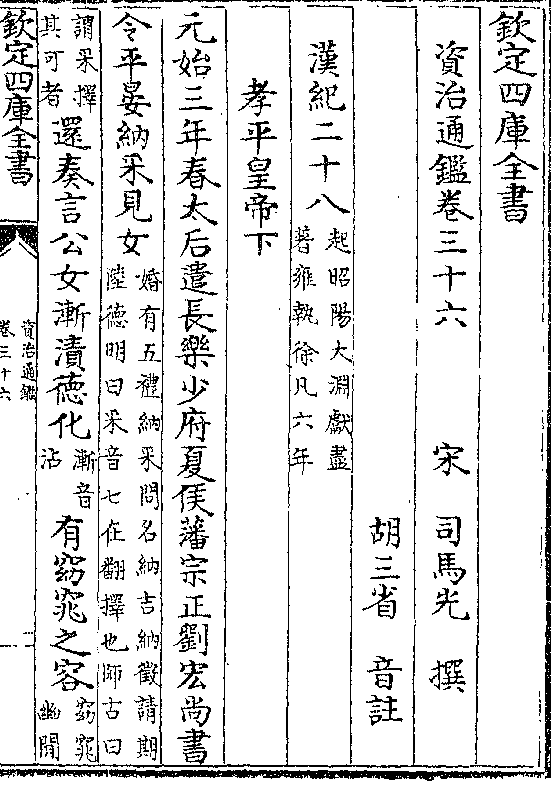 欽定四庫全書
資治通鑑卷三十六
宋 司馬光 撰
胡三省 音註
漢紀二十八
起昭陽大淵獻盡
著雍執徐凡六年
孝平皇帝下
元始三年春太后遣長樂少府夏侯藩宗正劉宏尚書
令平晏納采見女
婚有五禮納采問名納吉納徵請期
陸德明曰采音七在翻擇也師古曰
謂采擇
其可者
還奏言公女漸漬德化
漸音
沾
有窈窕之容
窈窕
幽閒
欽定四庫全書
資治通鑑
卷三十六
一